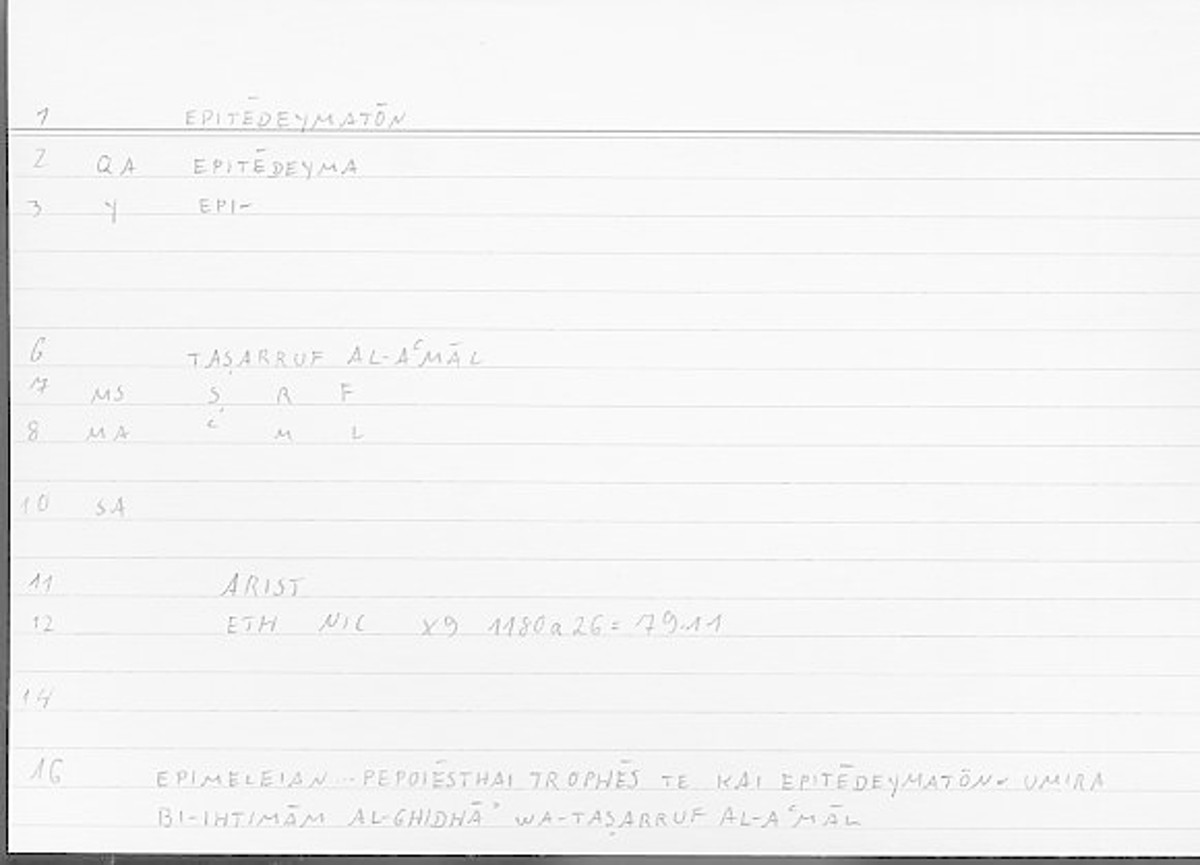 1 EPITĒDEYMATŌN
2 QA EPITĒDEYMA
3 Y EPI~
6 TAṢARRUF AL-AʿMĀL
7 MS Ṣ R F
8 MA ʿ M L
10 SA
11 ARIST
12 ETH NIC X9 1180a26=79.11
14
16 EPIMELEIAN...PEPOIĒSTHAI TROPHĒS TE KAI EPITĒDEYMATŌN~ UMIRA
BI-IHTIMĀM AL-GHIDHĀʾ WA-TAṢARRUF AL-AʿMĀL